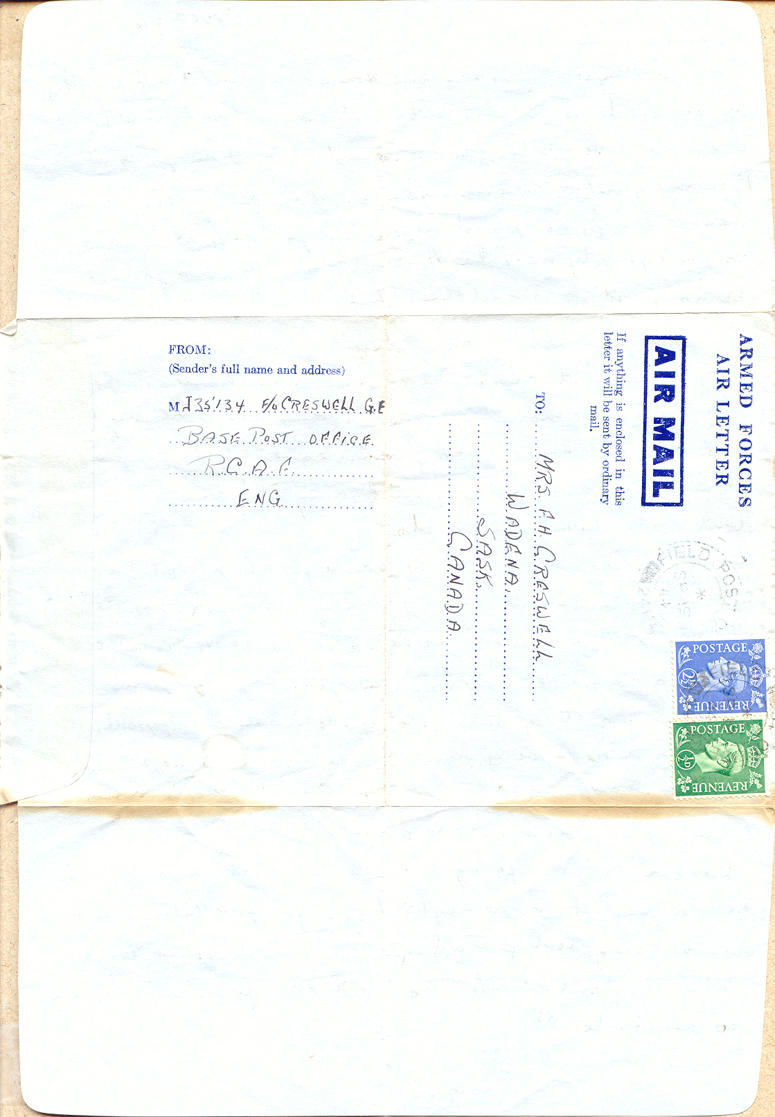 ARMED FORCES
AIR LETTER
AIR MAIL
If anything is enclosed in this
letter it will be sent by ordinary
mail.
TO:
MRS F H CRESWELL
WADENA.
SASK.
CANADA.
FIELD POST
POSTAGE
2½D
REVENUE
POSTAGE
½D
REVENUE
FROM:
(Sender's full name and address)
M J35134 F/O CRESWELL G.E
BASE POST OFFICE
R.C.A.F.
ENG